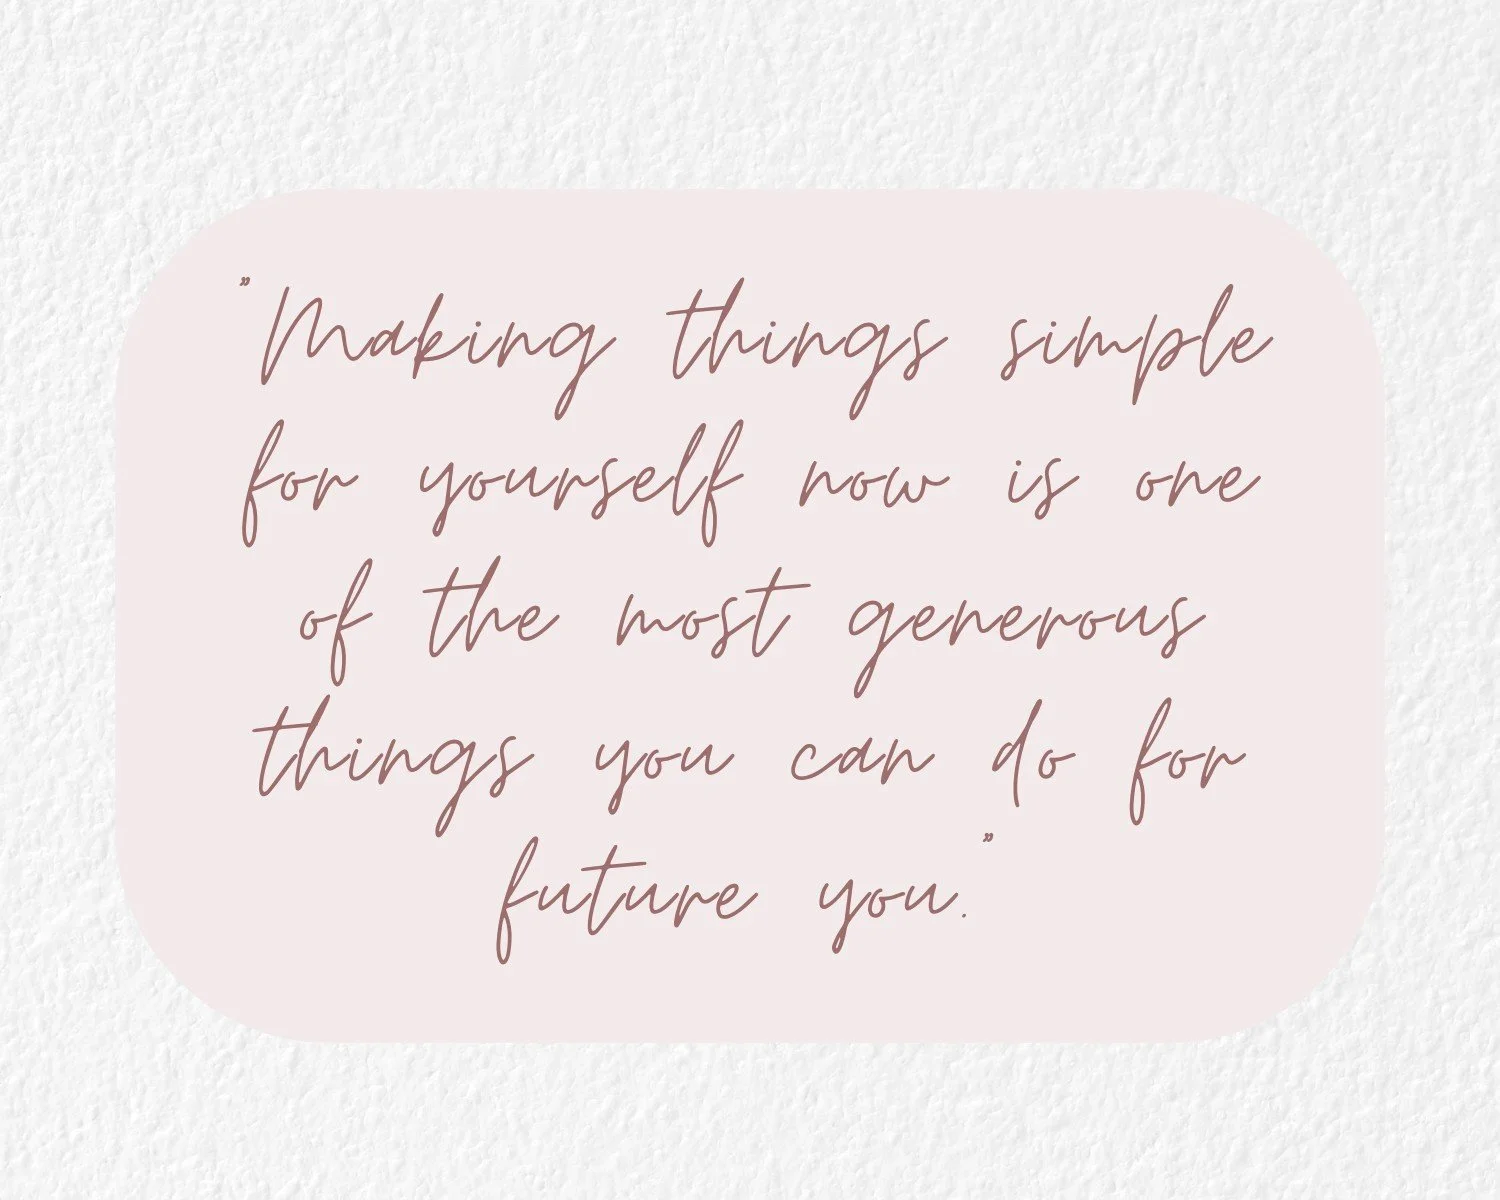 "Making things simple
for yourself now is one
of the most generous
things you can do for
future you."